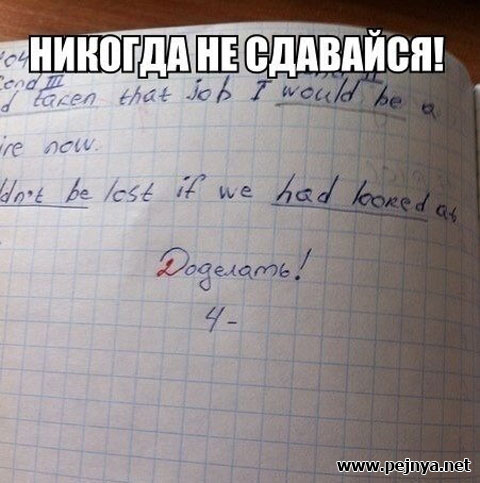 НИКОГДА НЕ СДАВАЙСЯ!
ond III
d taken that job I would be a
ire now.
ldn't be lost if we had looked at
Доделать!
4-
www.pejnya.net